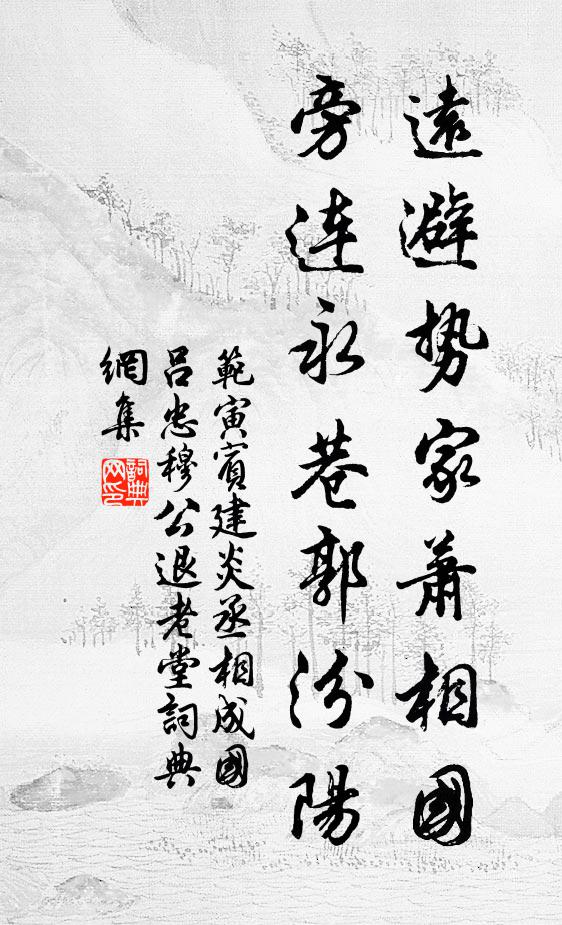 遠避势家蕭相國
旁连永巷郭汾陽
範寅賓建炎丞相成國
呂忠穆公退老堂詞典
網集
詞典網印